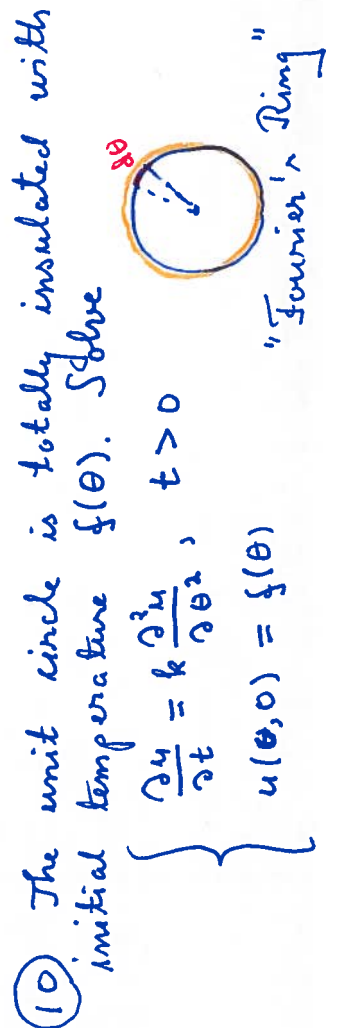 (10) The unit circle is totally insulated with
initial temperature f(θ). Solve
∂u/∂t = k ∂²u/∂θ², t > 0
u(θ,0) = f(θ)
dθ
"Fourier's Ring"